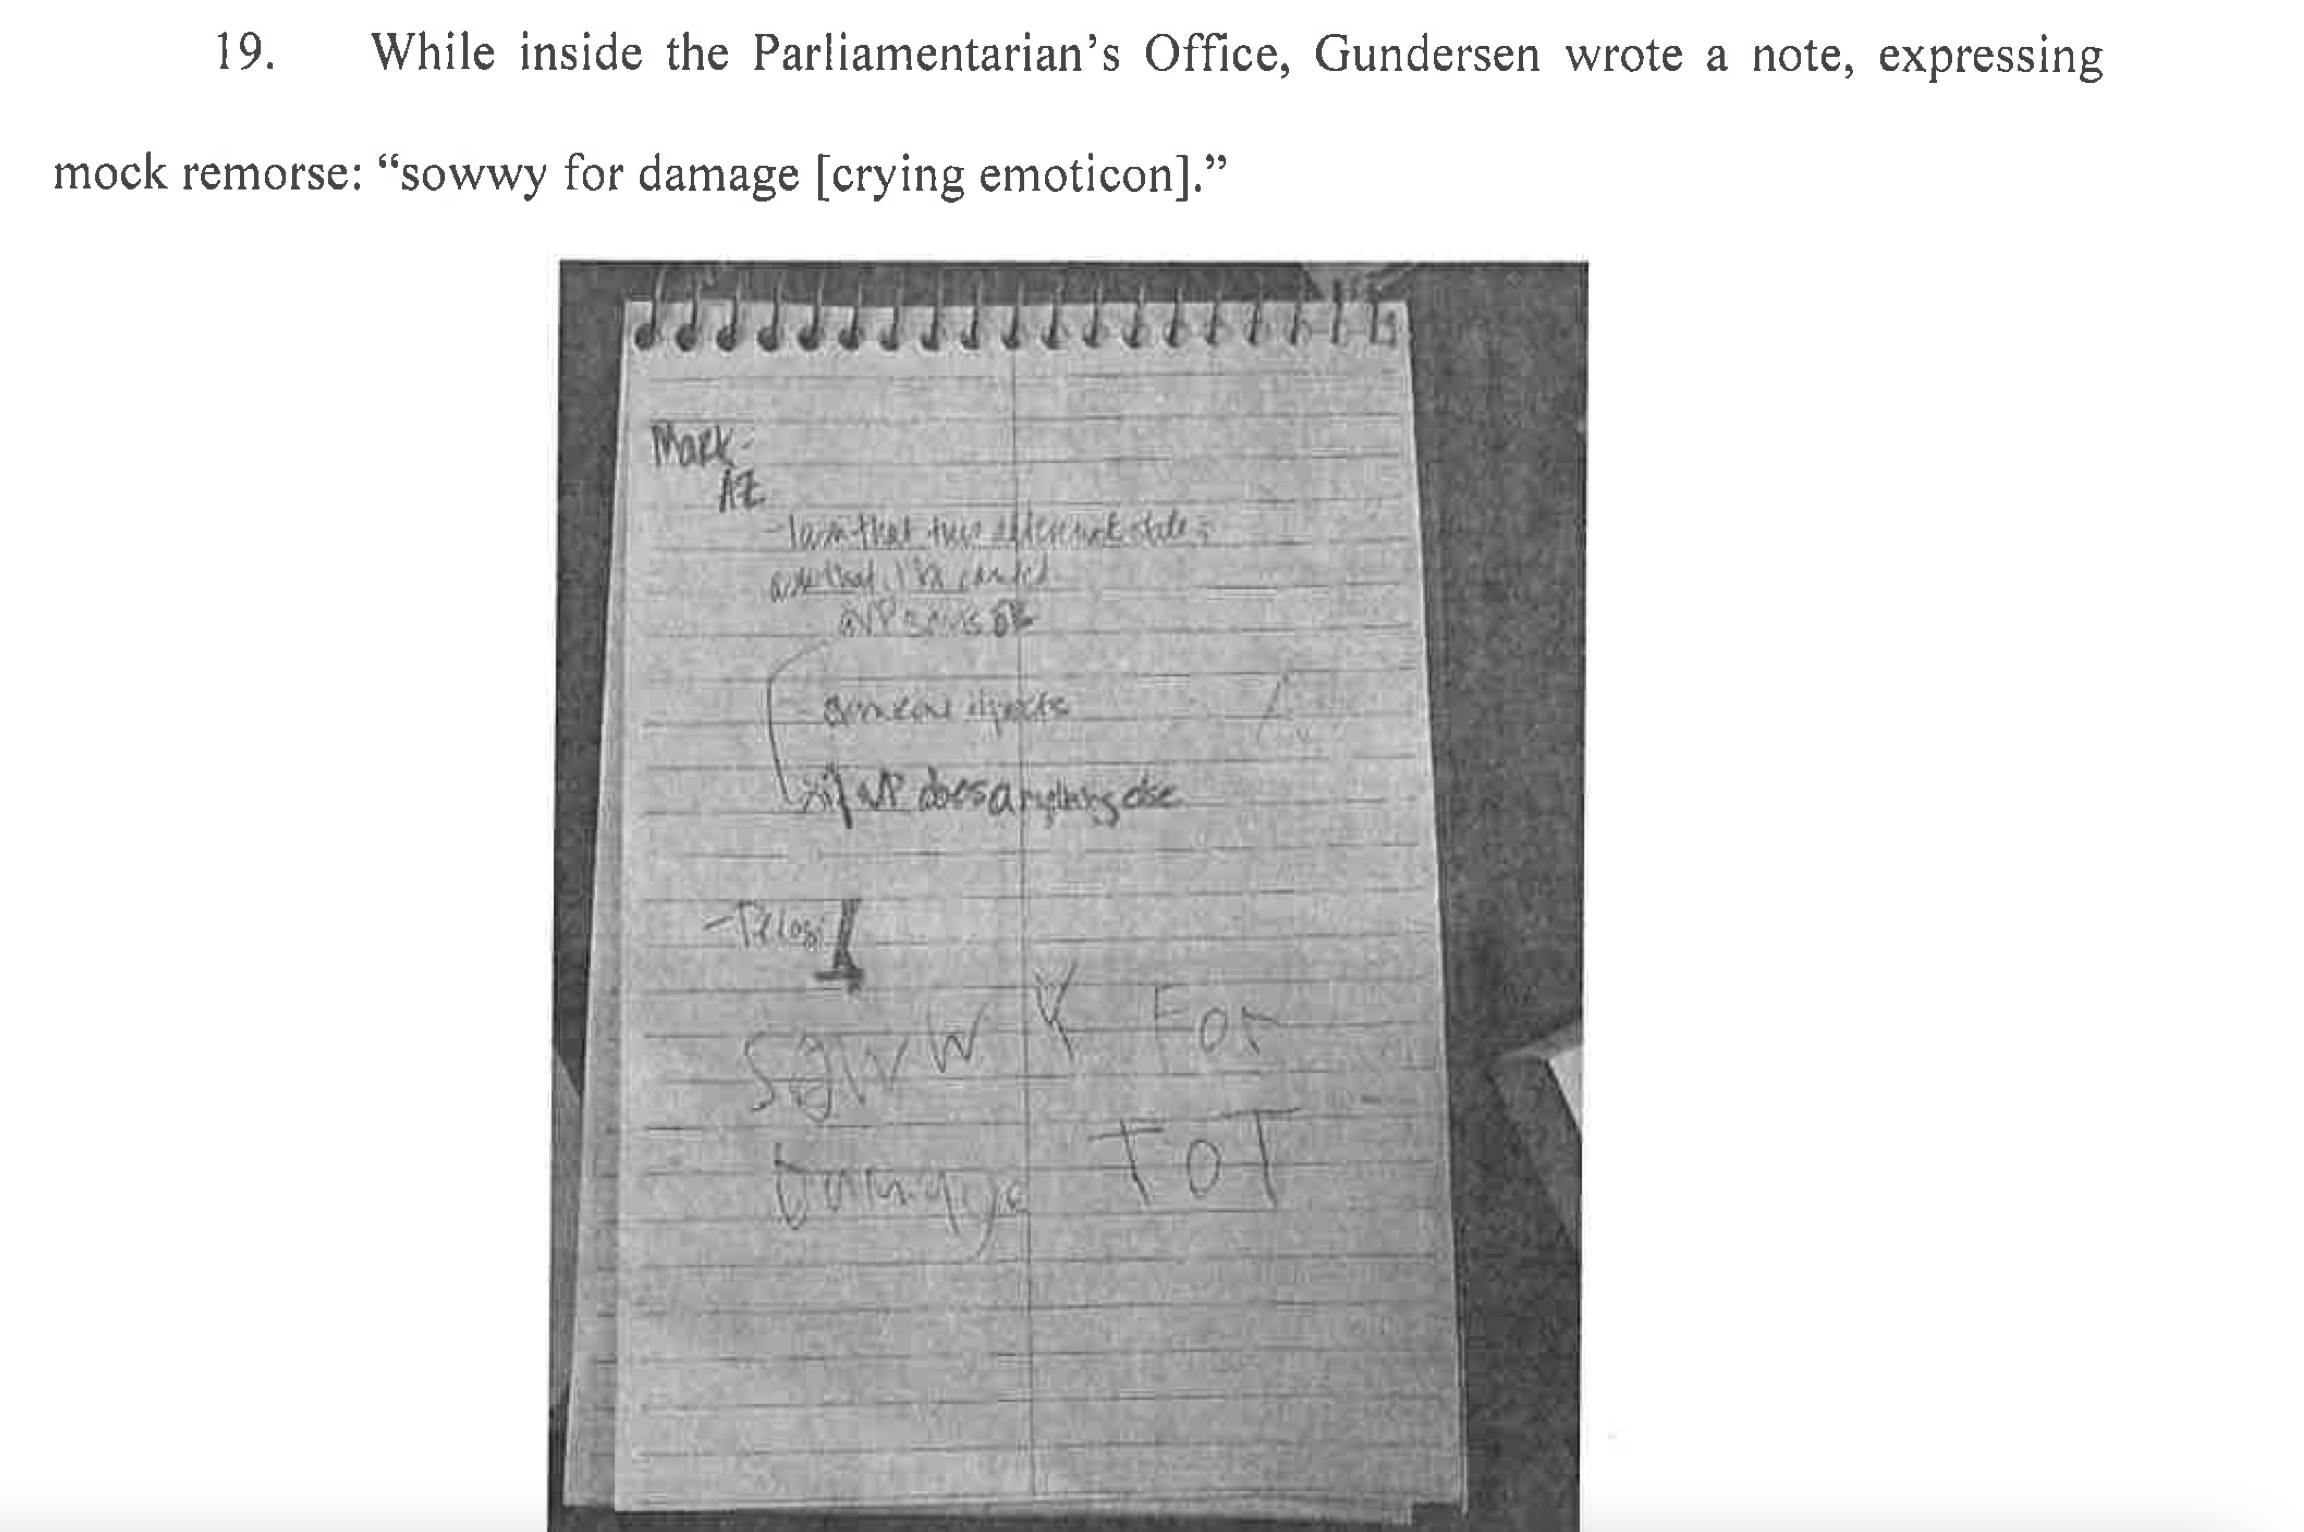 19. While inside the Parliamentarian’s Office, Gundersen wrote a note, expressing
mock remorse: “sowwy for damage [crying emoticon].”
Mark-
AZ
that two
that
VP
objects
if VP does anything else
-Pelosi
SOWWY For
Damage TOT